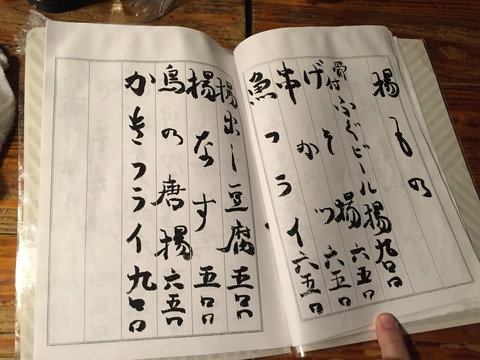 揚もの
骨付ふぐビール揚九〇〇
げそ揚六五〇
串かつ六五〇
魚フライ六五〇
揚出し豆腐五〇〇
揚なす五〇〇
鳥の唐揚六五〇
かきフライ九〇〇